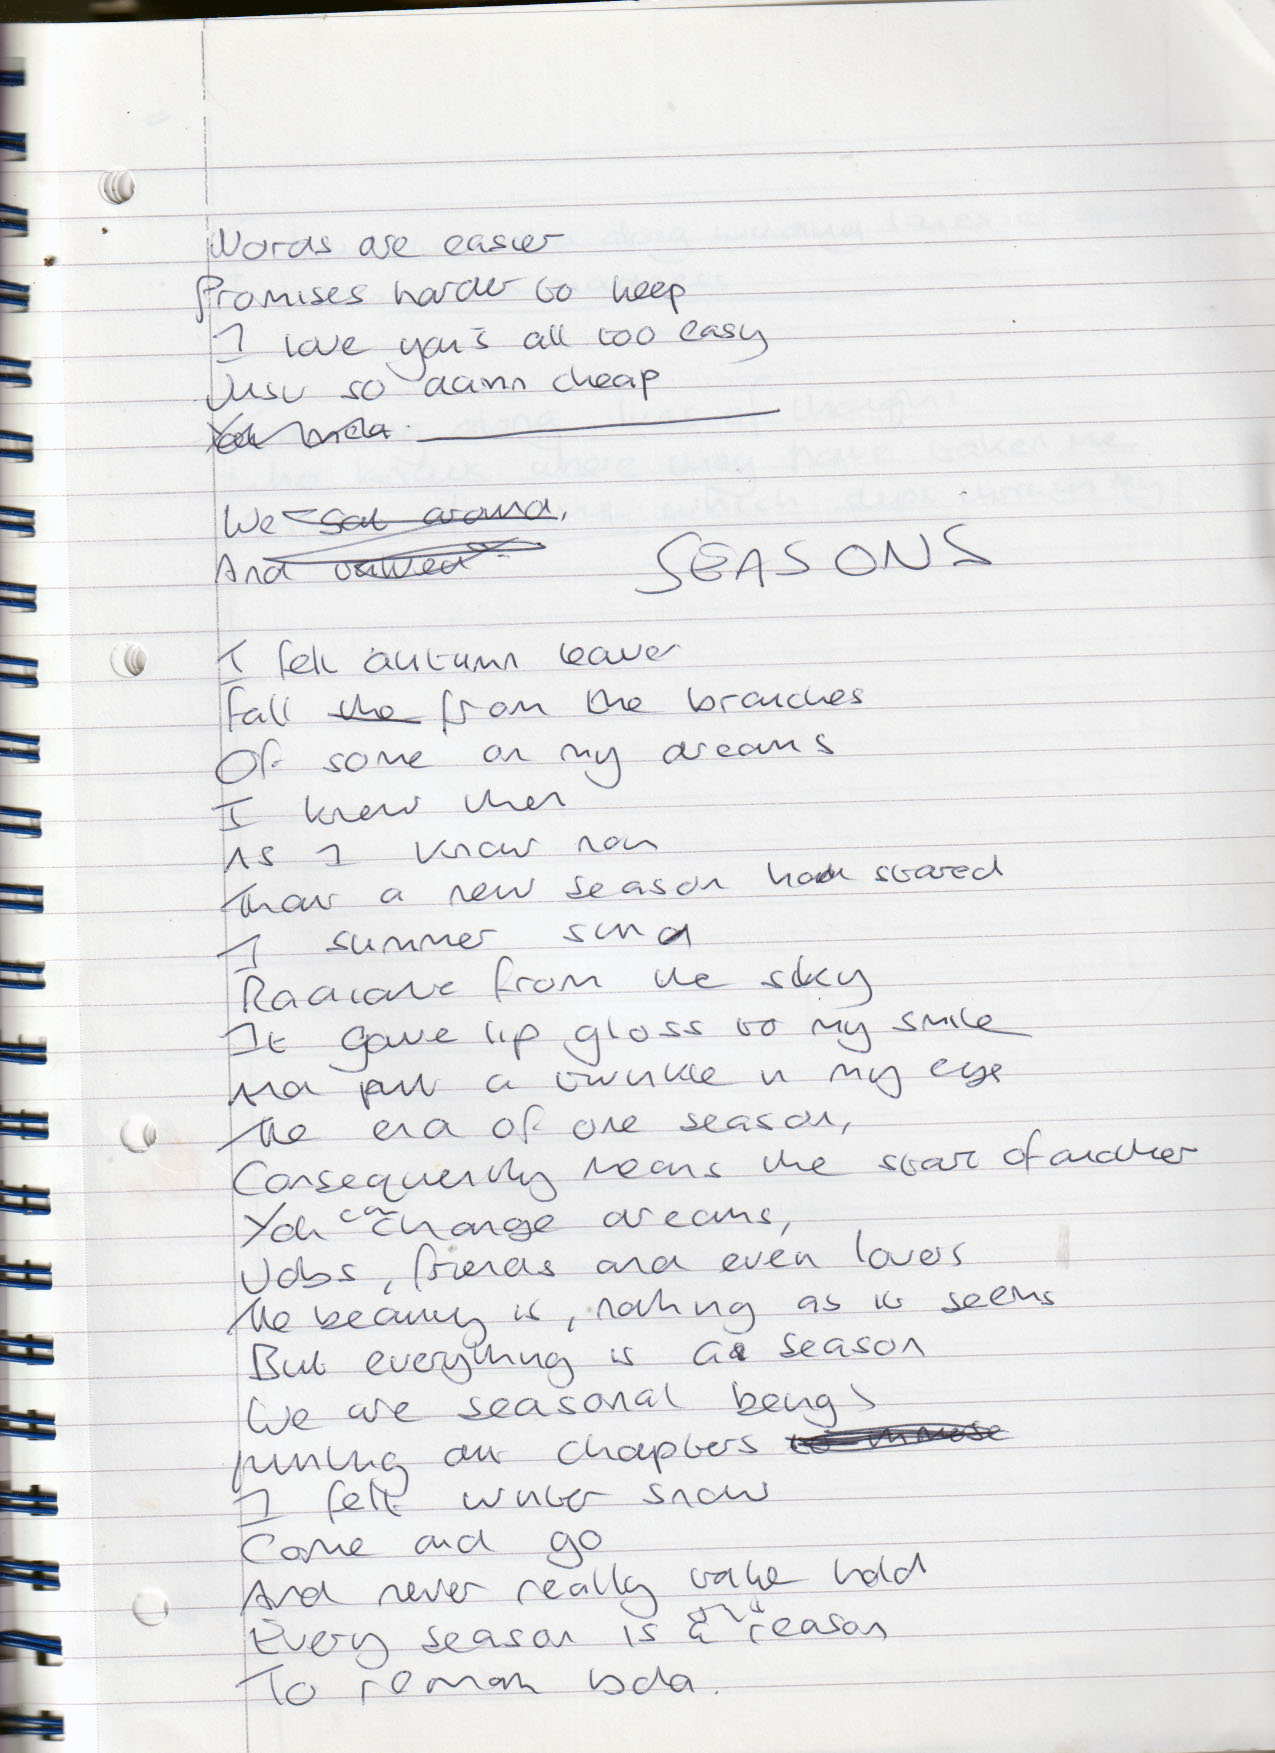 Words are easier
Promises harder to keep
I love you's all too easy
Just so damn cheap
You
We sat around,
And talked
SEASONS
I felt autumn leaves
Fall the from the branches
Of some on my dreams
I knew then
As I know now
That a new season had stared
I summer sun
Radiate from the sky
It gave lip gloss to my smile
And put a twinkle in my eye
The end of one season,
Consequently means the start of another
You can change dreams,
Jobs, friends and even lovers
The beauty is, nothing as it seems
But everything is a season
We are seasonal beings
our chapters
I felt winter snow
Come and go
And never really take hold
Every season is a reason
To remain bold.